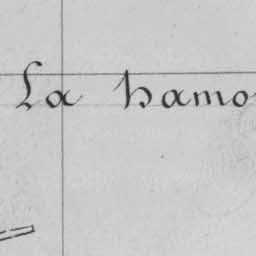 La hamo